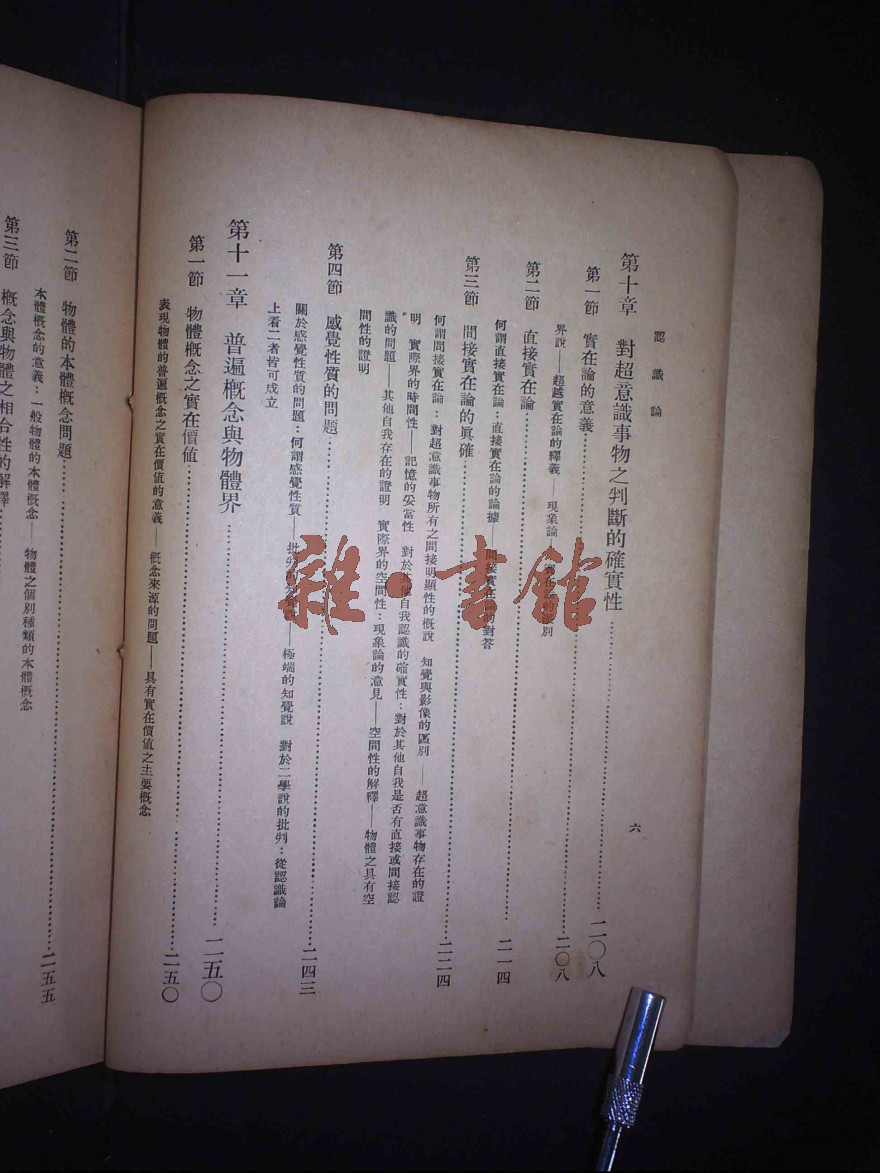 認識論
六
第十章　對超意識事物之判斷的確實性……二〇八
第一節　實在論的意義……二〇八
界說——超越實在論的釋義——現象論——別
第二節　直接實在論……二一四
何謂直接實在論：直接實在論的論據——間接實在論的對答
第三節　間接實在論的真確……二二四
何謂間接實在論：對超意識事物所有之間接明顯性的概說　知覺與影像的區別——超意識事物存在的證
明　實際界的時間性——記憶的妥當性　對於其他自我認識的確實性：對於其他自我是否有直接或間接認
識的問題——其他自我存在的證明　實際界的空間性：現象論的意見——空間性的解釋——物體之具有空
間性的證明
第四節　感覺性質的問題……二四三
關於感覺性質的問題：何謂感覺性質——批判——極端的知覺說　對於二學說的批判：從認識論
上看二者皆可成立
第十一章　普遍概念與物體界……二五〇
第一節　物體概念之實在價值……二五〇
表現物體的普遍概念之實在價值的意義——概念來源的問題——具有實在價值之主要概念
第二節　物體的本體概念問題……二五五
本體概念的意義：一般物體的本體概念——物體之個別種類的本體概念
第三節　概念與物體之相合性的解釋
雜·書館